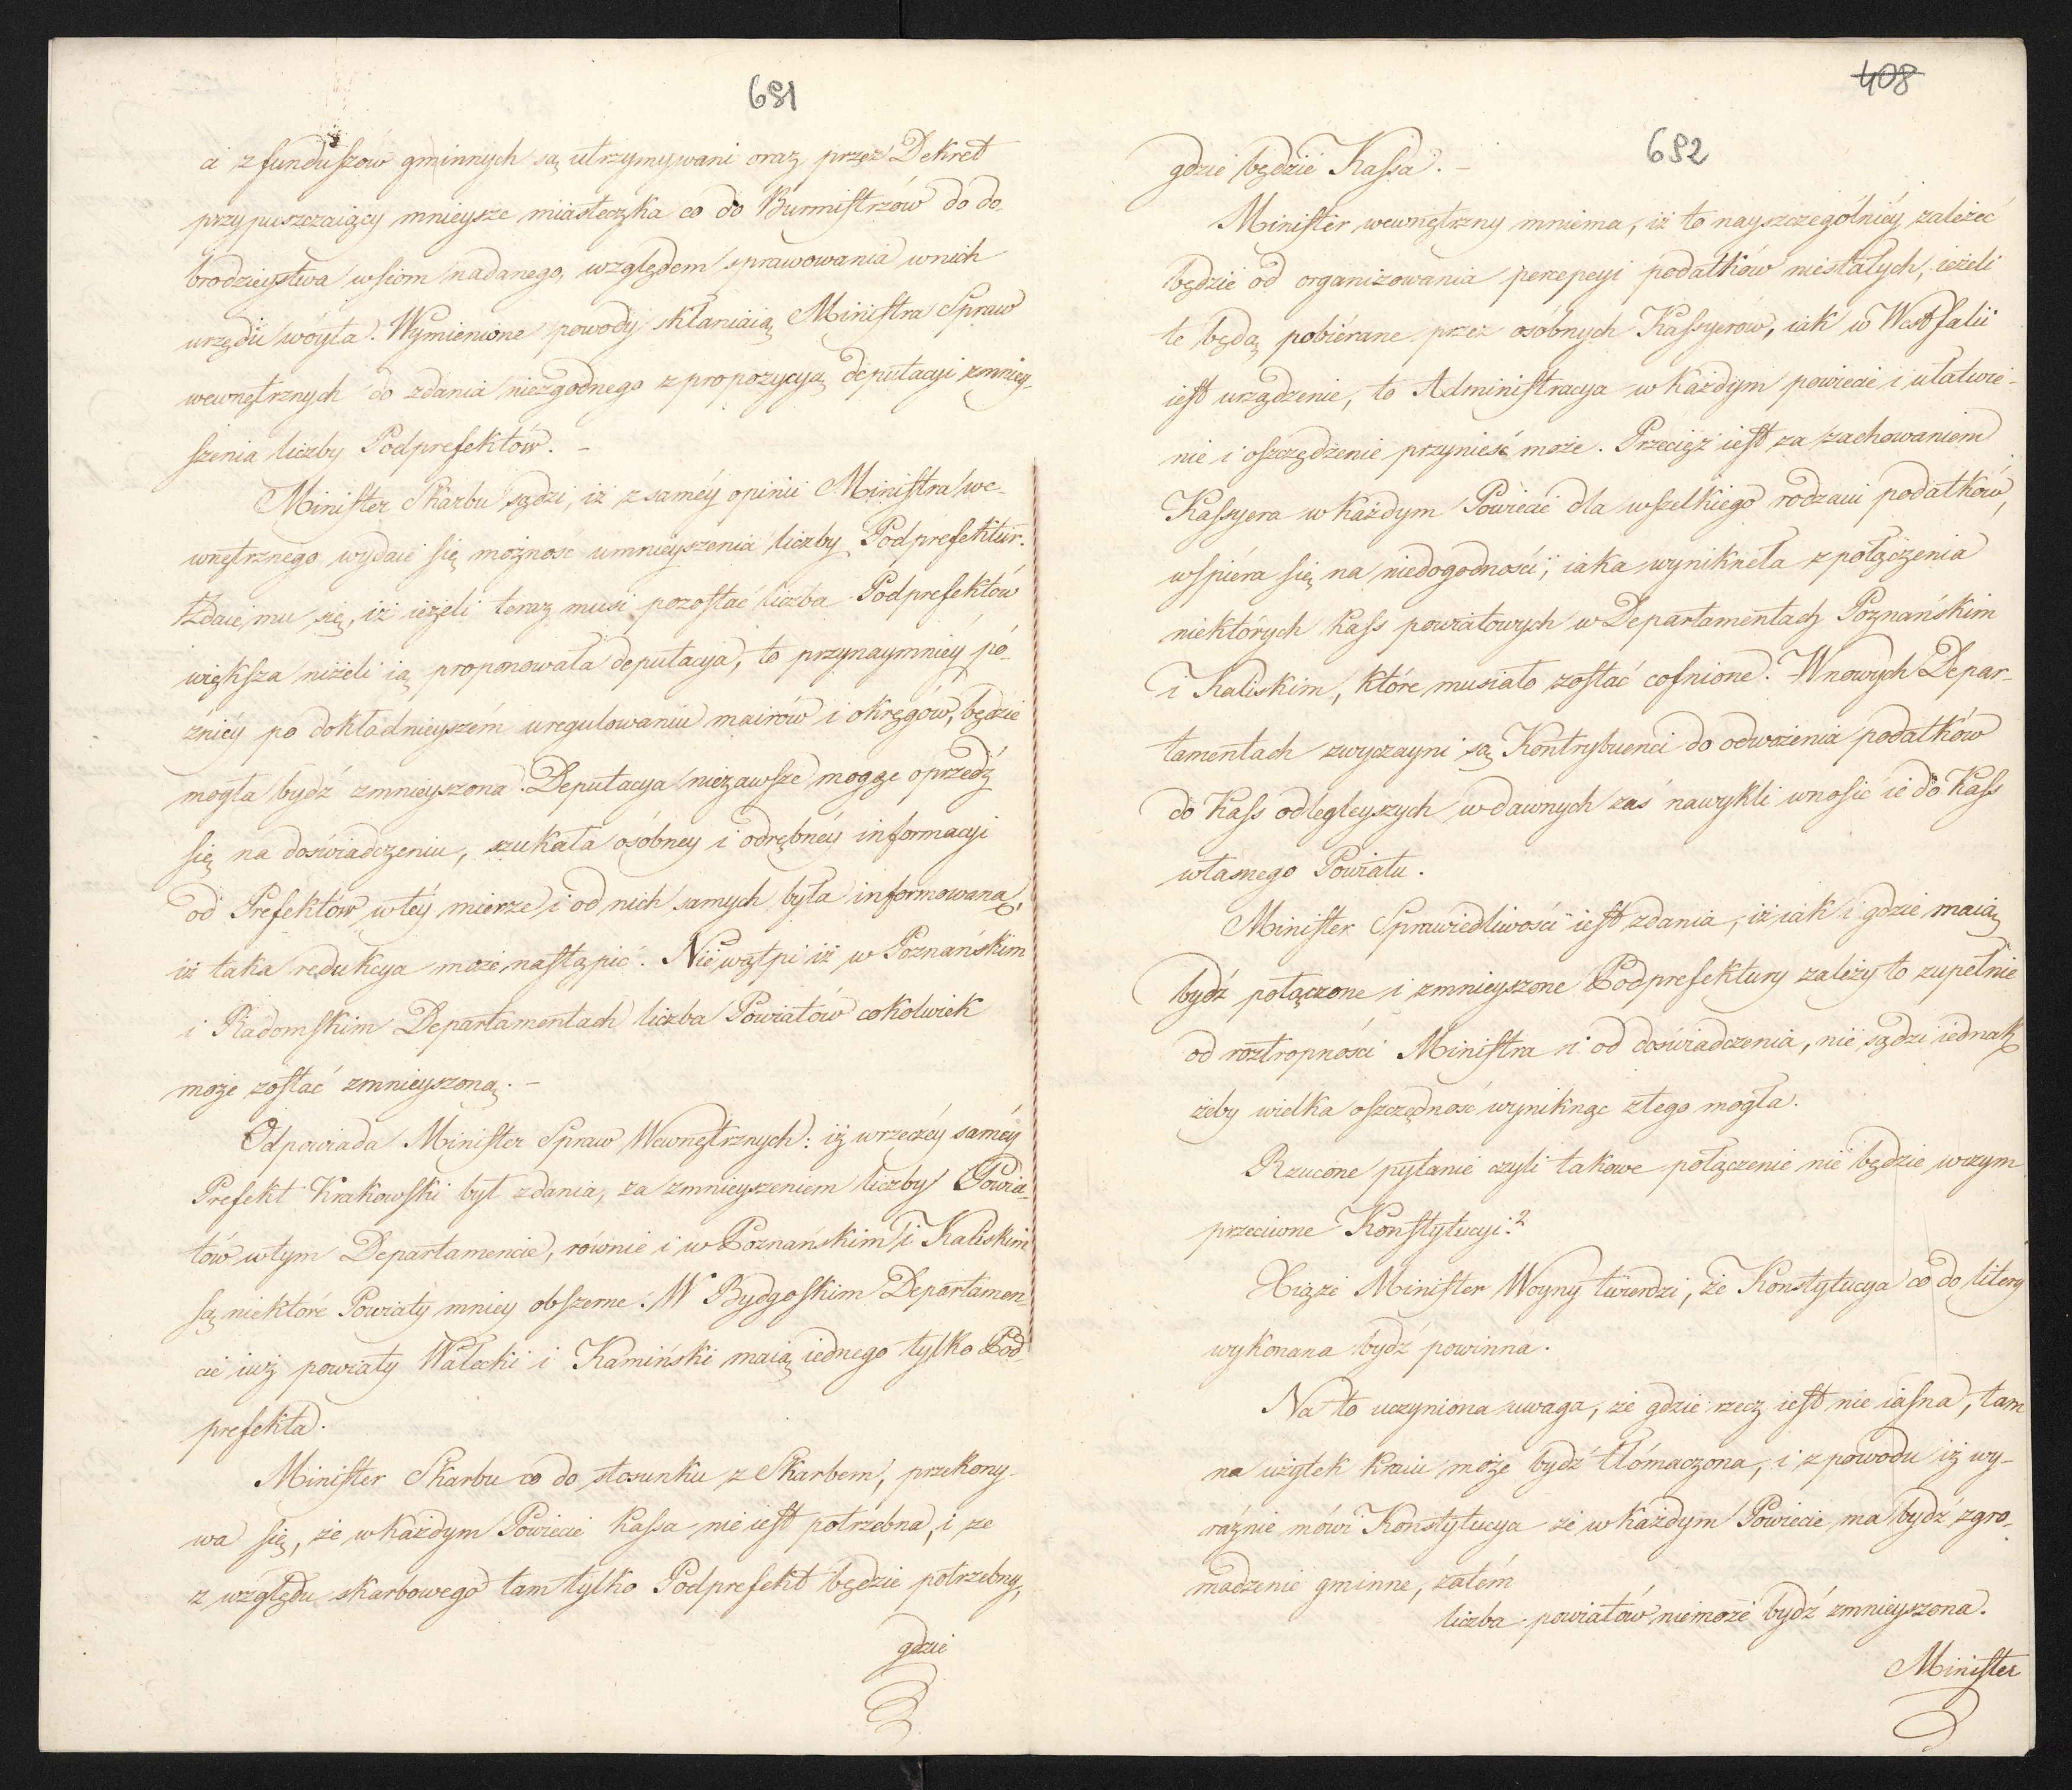 681
ci z funduszów gminnych są utrzymywani oraz przez Dekret
przypuszczaiący mnieysze miasteczka co do Burmistrzów do do-
brodzieystwa wsiom nadanego, względem sprawowania w nich
urzędu wóyta. Wymienione powody skłaniaią Ministra Spraw
wewnętrznych do zdania niezgodnego z propozycyą deputacyi zmniey-
szenia liczby Podprefektów. –
Minister Skarbu sądzi, iż z saméy opinii Ministra we-
wnętrznego wydaie się możność umnieyszenia liczby Podprefektur.
Zdaie mu się, iż ieżeli teraz musi pozostać liczba Podprefektów
większa niżeli ią proponowała deputacya, to przynaymniéy pó-
źniéy po dokładnieyszém uregulowaniu mairów i okręgów, będzie
mogła bydź zmnieyszona. Deputacya niezawsze mogąc oprzedź
się na doświadczeniu, szukała osóbney i odrębnéy informacyi
od Prefektów w téy mierze i od nich samych była informowaną,
iż taka redukcya może nastąpić. Nie wątpi iż w Poznańskim
i Radomskim Departamentach liczba Powiatów cokolwiek
może zostać zmnieyszoną. –
Odpowiada Minister Spraw Wewnętrznych: iż w rzeczéy saméy
Prefekt Krakowski był zdania, za zmnieyszeniem liczby Powia-
tów w tym Departamencie, równie i w Poznańskim i Kaliskim
są niektóre Powiaty mniey obszerne. W Bydgoskim Departamen-
cie iuż powiaty Wałecki i Kamiński maią iednego tylko Pod-
prefekta.
Minister Skarbu co do stosunku z Skarbem, przekony-
wa się, że w każdym Powiecie kassa nie iest potrzebna, i że
z względu skarbowego tam tylko Podprefekt będzie potrzebny,
gdzie
408
682
gdzie będzie Kassa. –
Minister wewnętrzny mniema, iż to nayszczególniéy zależeć
będzie od organizowania percepcyi podatków niestałych, ieżeli
te będą pobiérane przez osóbnych Kassyerów, iak w Westfalii
iest urządzenie, to Administracya w każdym powiecie i ułatwie-
nie i oszczędzenie przynieść może. Przecięż iest za zachowaniem
Kassyera w każdym Powiecie dla wszelkiego rodzaiu podatków,
wspiéra się na niedogodności, iaka wynikneła z połączenia
niektórych kass powiatowych w Departamentach Poznańskim
i Kaliskim, które musiało zostać cofnione. W nowych Depar-
tamentach zwyczayni są Kontrybuenci do odwożenia podatków
do Kass odlegleyszych w dawnych zaś nawykli wnosić ie do Kass
własnego Powiatu.
Minister Sprawiedliwości iest zdania, iż iak i gdzie maią
bydź połączone i zmnieyszone Podprefektury zależy to zupełnie
od roztropności Ministra i od doświadczenia, nie sądzi iednak
żeby wielka oszczędność wyniknąć z tego mogła.
Rzucone pytanie czyli takowe połączenie nie będzie w czym
przeciwne Konstytucyi?
Xiąże Minister Woyny twierdzi, że Konstytucya co do litery
wykonana bydź powinna.
Na to uczyniona uwaga, że gdzie rzecz iest nie iasna, tam
na użytek kraiu może bydź tłómaczona, i z powodu iż wy-
raźnie mówi Konstytucya że w każdym Powiecie ma bydź zgro-
madzenie gminne, zatém
liczba powiatów niemoże bydź zmnieyszona.
Minister